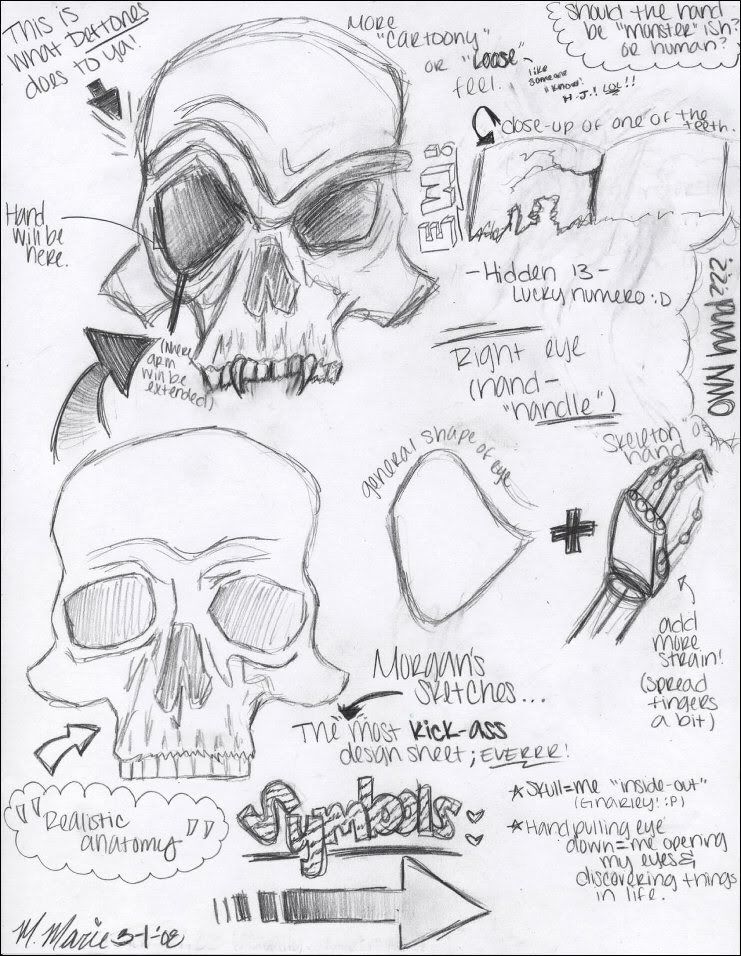 This is
what Deftones
does to ya!
More
"cartoony"
or "Loose"
feel.
like
someone
"I know"
H.J.! LOL!!
Should the hand
be "monster"ish?
or human?
close-up of one of the
teeth.
Hand
will be
here.
-Hidden 13-
Lucky numero :D
(where
arm
will be
extended)
Right eye
(hand-
"handle")
general shape of eye
"skeleton"
hand
+
add
more
strain!
(spread
fingers
a bit)
Morgan's
sketches...
The most kick-ass
design sheet; EVERRR!
"Realistic
anatomy"
Symbols
★Skull=me "inside-out"
(Gnarley! :P)
★Hand pulling eye
down=me opening
my eyes &
discovering things
in life.
M. Marie 3-1-'08